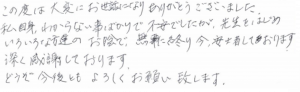 この度は大変にお世話になりありがとうございました。
私自身、わからない事ばかりで不安でしたが、先生をはじめ
いろいろな方達のお陰で、無事に終り今、安心して居ります
深く感謝しております。
どうぞ今後とも よろしくお願い致します。